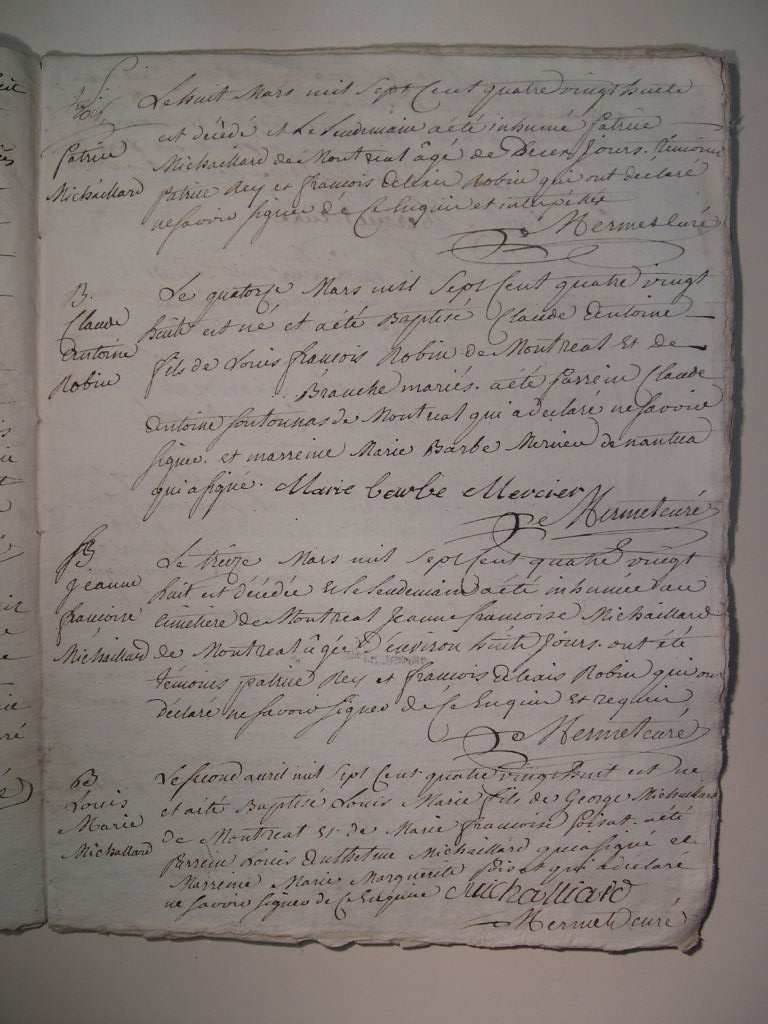 Le huit Mars mil Sept Cent quatre vingt huite
est décédé et Le Lendemain a été inhumé Patrice
Michaillard de Montreal âgé de jours. témoins
Patrice Rey et francois Robin qui ont déclaré
ne savoir signer de Ce Enquis et interpéllés
Hermet curé
Patrice
Michaillard
B.
Claude
Antoine
Robin
Le quatorze Mars mil Sept Cent quatre vingt
huit est né et a été Baptisé Claude Antoine
fils de Louis francois Robin de Montreal Et de
Branche mariés. a été parrein Claude
Antoine de Montreal qui a declaré ne savoir
signer. et marreine Marie Barbe Mercier de nantua
qui a signé. Marie barbe Mercier
Hermet curé
jeanne
francoise
Michaillard
Le treize Mars mil Sept Cent quatre vingt
huit est décédée et le Lendemain a été inhumée au
cimetiere de Montreal Jeanne francoise Michaillard
de Montreal âgée D'environ huit Jours. ont été
témoins patrice Rey et francois Robin qui ont
déclaré ne savoir signer de Ce Enquis Et requis
Hermet curé
B
Louis
Marie
Michaillard
Le second avril mil Sept Cent quatre vingt huit est né
et a été Baptisé Louis Marie fils de George Michaillard
de Montreal Et de Marie francoise poisat. a été
Parrein Louis Anthelme Michaillard qui a signé et
Marreine Marie Marguerite poisat qui a declaré
ne savoir signer de Ce Enquise Michalliard
Hermet curé